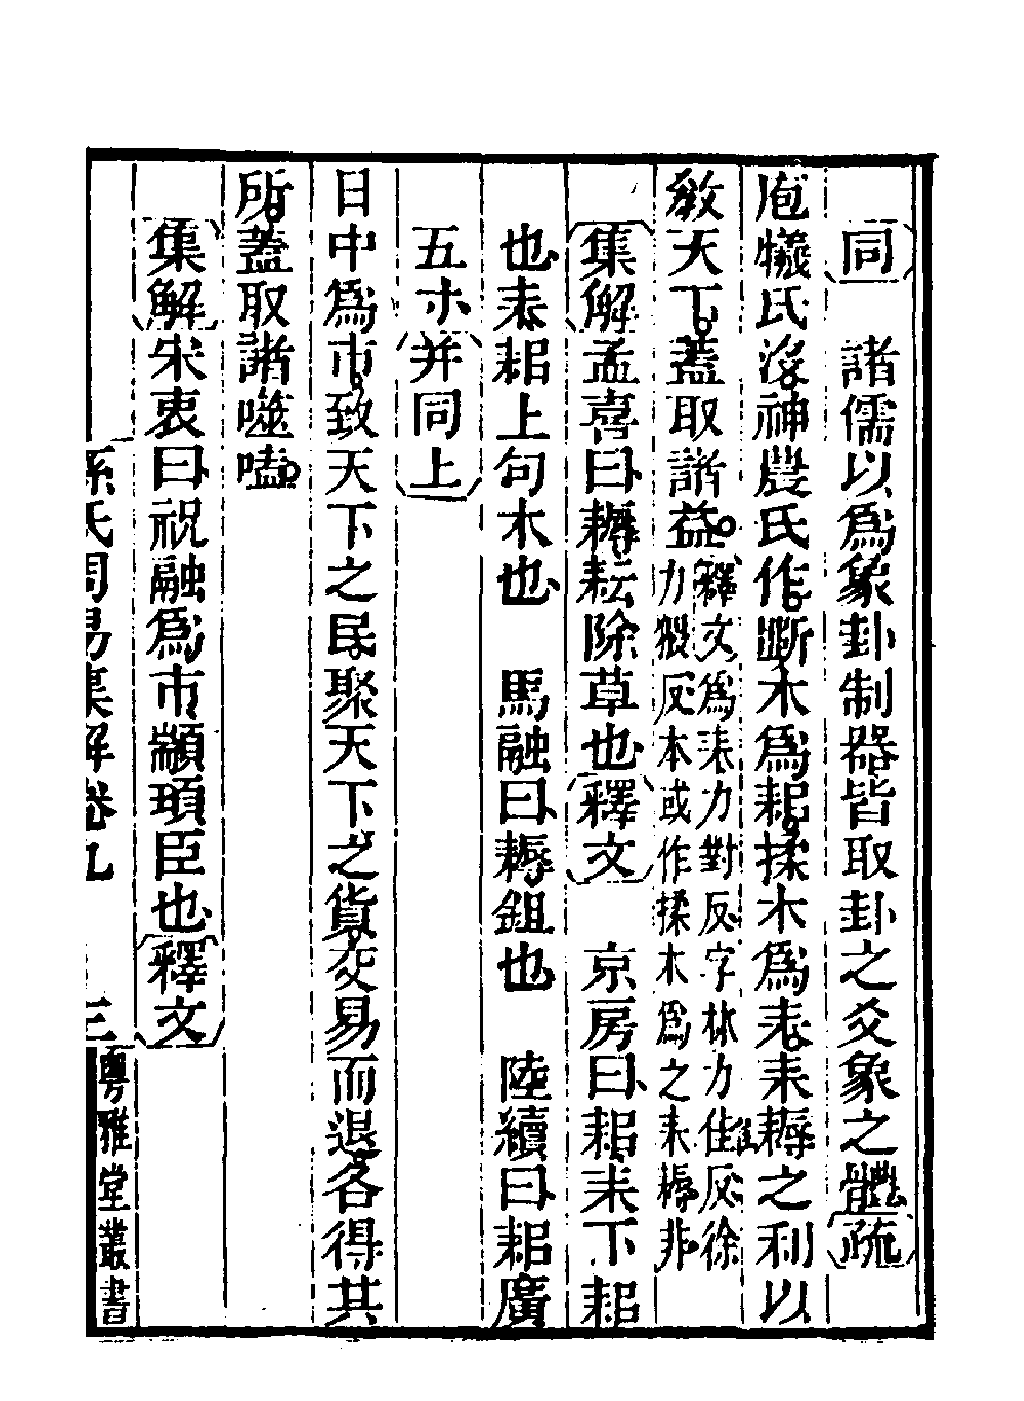 同　諸儒以爲象卦制器皆取卦之爻象之體疏
庖犧氏沒神農氏作斵木爲耜揉木爲耒耒耨之利以
教天下蓋取諸益釋文爲耒力對反字林力佳反徐
力猥反本或作揉木爲之耒耨非
集解孟喜曰耨耘除草也釋文　京房曰耜耒下耓
也耒耜上句木也　馬融曰耨鉏也　陸續曰耜廣
五寸并同上
日中爲市致天下之民聚天下之貨交易而退各得其
所蓋取諸噬嗑
集解宋衷曰祝融爲市顓頊臣也釋文
孫氏周易集解卷九　三　粤雅堂叢書